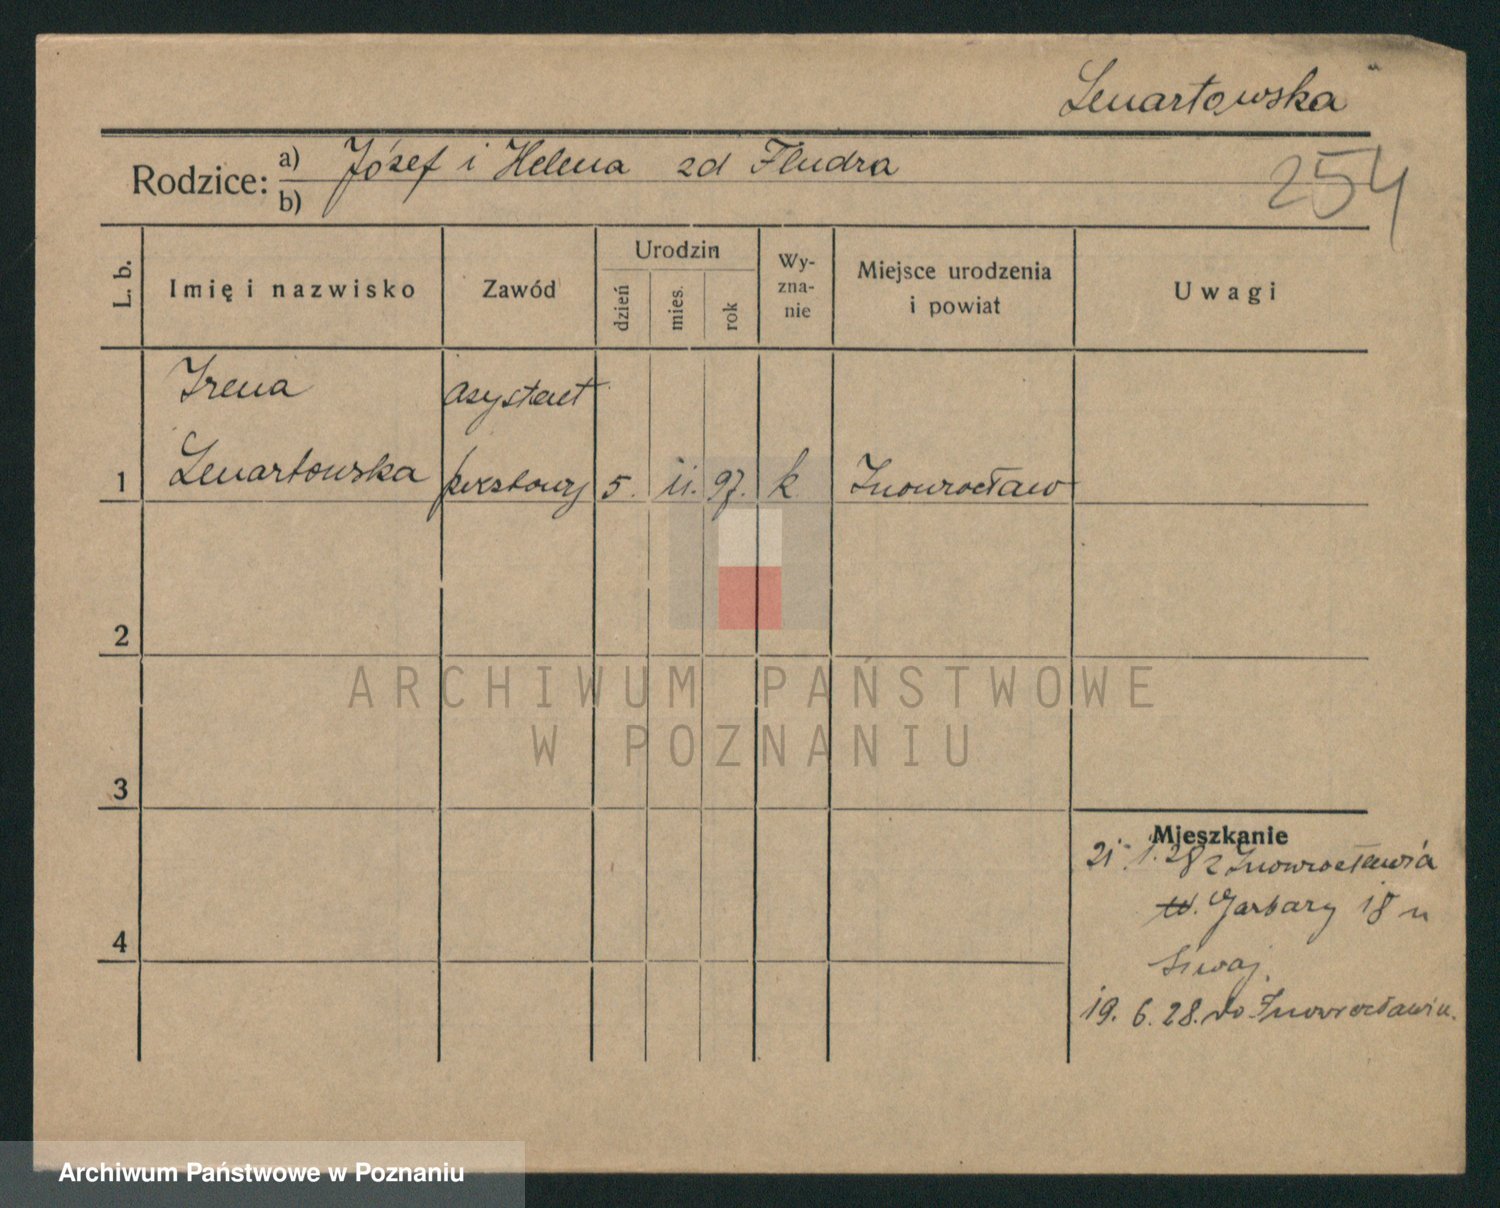 Lenartowska
Rodzice: a) Józef i Helena zd Fludra
b)
254
L. b.
Imię i nazwisko
Zawód
Urodzin
dzień
mies.
rok
Wy-
zna-
nie
Miejsce urodzenia
i powiat
Uwagi
Irena asystent
1 Lenartowska pocztowy 5. 11. 97. k Inowrocław
2
ARCHIWUM PAŃSTWOWE
W POZNANIU
3
Mieszkanie
21. 1. 28 z Inowrocławia
Garbary 18 u
4
19. 6. 28. do Inowrocławia.
Archiwum Państwowe w Poznaniu